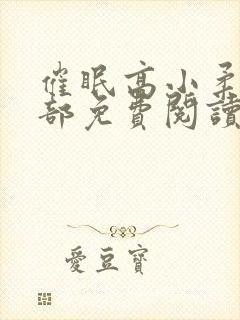 催眠高小柔
部免費閱讀
愛豆寶